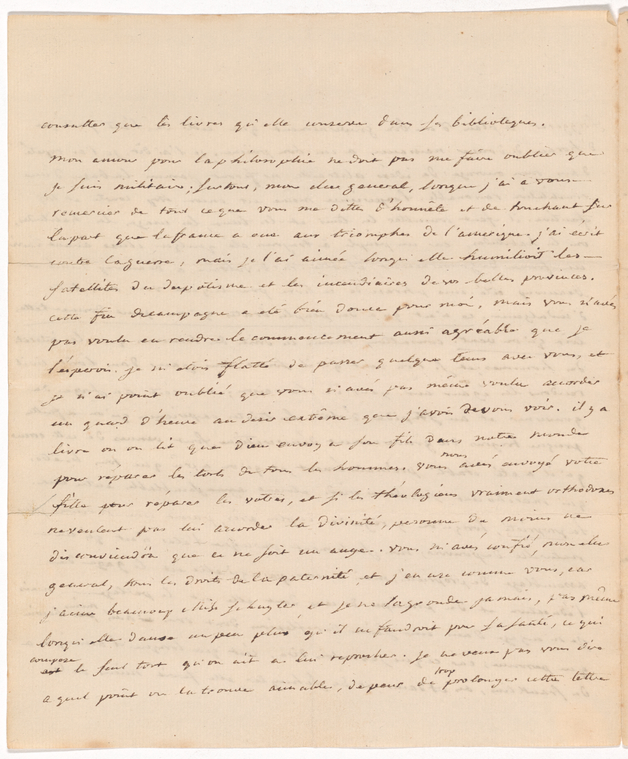 consulter que les livres qu'elle conserve dans ses biblioteques.
mon amour pour la philosophie ne doit pas me faire oublier que
je suis militaire; surtout, mon cher general, lorsque j'ai a vous
remercier de tout ce que vous me dittes d'honnête et de touchant sur
la part que la france a eue aux triomphes de l'amerique. j'ai ecrit
contre la guerre, mais je l'ai aimée lorsqu'elle humilioit les
satellites du despotisme et les incendiaires de vos belles provinces.
cette fin de campagne a eté bien douce pour moi, mais vous n'avés
pas voulu en rendre le commencement aussi agréable que je
l'esperois. je m'etois flatté de passer quelque tems avec vous, et
je n'ai point oublié que vous n'avés pas même voulu accorder
un quart d'heure au desir extrême que j'avois de vous voir. il y a
livre ou on lit que dieu envoya son fils dans notre monde
pour réparer les torts de tous les hommes. vous nous avés envoyé votre
fille pour réparer les votres, et si les théologiens vraiment orthodoxes
ne veulent pas lui accorder la divinité, personne du moins ne
disconviendra que ce ne soit un ange. vous m'avés confié, mon cher
general, tous les droits de la paternité et j'en use comme vous, car
j'aime beaucoup miss schuyler et je ne la gronde jamais, pas même
lorsqu'elle danse un peu plus qu'il ne faudroit pour sa santé, ce qui
compose le seul tort qu'on ait a lui reprocher. je ne veux pas vous dire
a quel point on la trouve aimable, de peur de trop prolonger cette lettre